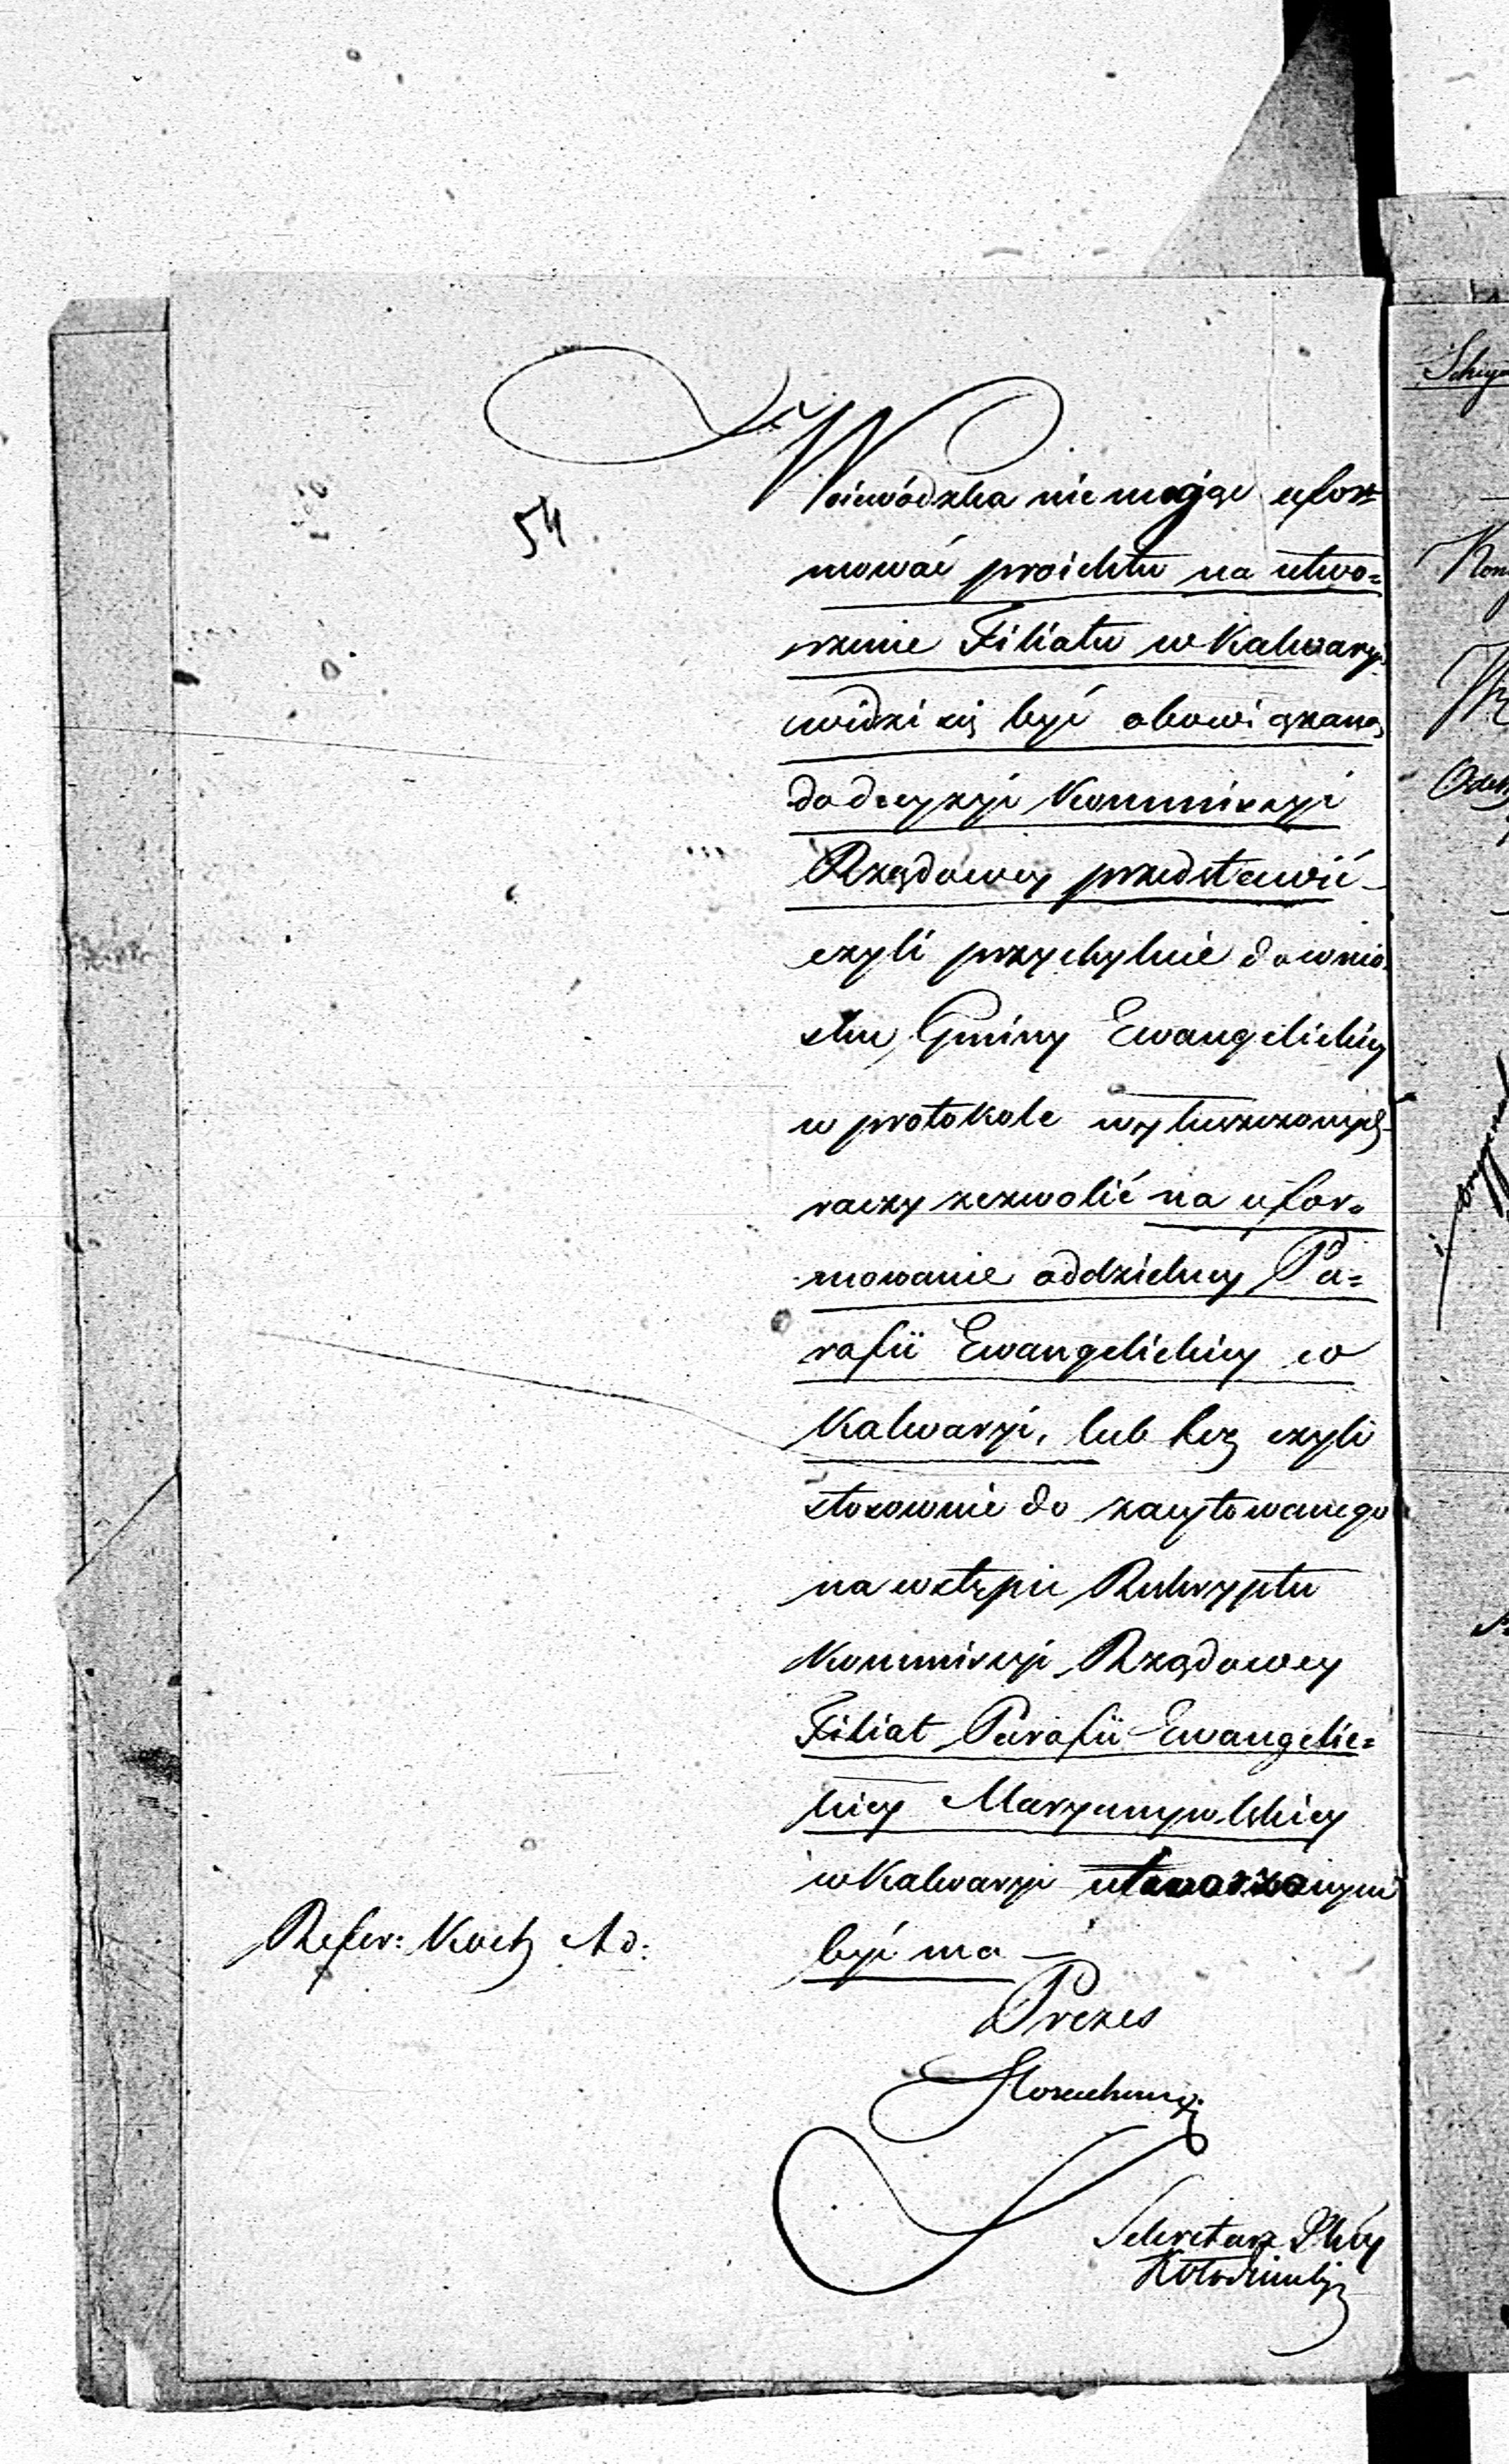 54
Woiewódzka nie mogąc ufor=
mować proiektu na utwo=
rzenie Filiału w Kalwaryi
widzi się być obowiązaną
do decyzyi Kommissyi
Rządowey przedstawić
czyli przychylnie do wnio
sku Gminy Ewangelickiey
w protokole wyłuszczonych
raczy zezwolić na ufor=
mowanie oddzielney Pa=
rafii Ewangelickiey w
Kalwaryi, lub też czyli
stosownie do zacytowanego
na wstępie Reskryptu
Kommissyi Rządowey
Filiał Parafii Ewangelic=
kiey Maryampolskiey
w Kalwaryi utworzonym
być ma —
Refer: Koch Ad:
Prezes
Sekretarz